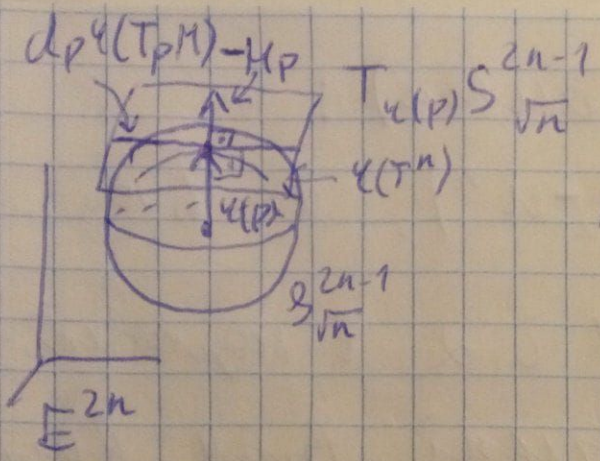 dₚφ(TₚM)
-Hₚ
T_φ(p) S^{2n-1}_{√n}
φ(Tⁿ)
φ(p)
S^{2n-1}_{√n}
E^{2n}